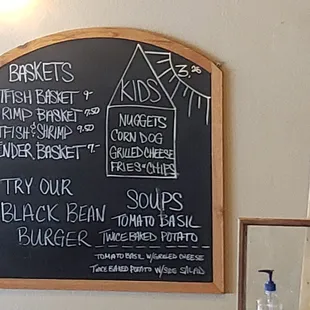 BASKETS
TFISH BASKET 9
RIMP BASKET 9.50
TFISH & SHRIMP 9.50
ENDER BASKET 9-
KIDS
3.95
NUGGETS
CORN DOG
GRILLED CHEESE
FRIES OR CHIPS
TRY OUR
BLACK BEAN
BURGER
SOUPS
TOMATO BASIL
TWICE BAKED POTATO
TOMATO BASIL W/GRILLED CHEESE
TWICE BAKED POTATO W/SIDE SALAD